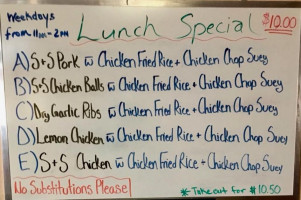 Weekdays
from 11am-2pm
Lunch Special
$10.00
A) S+S Pork w Chicken Fried Rice + Chicken Chop Suey
B) S+S Chicken Balls w Chicken Fried Rice + Chicken Chop Suey
C) Dry Garlic Ribs w Chicken Fried Rice + Chicken Chop Suey
D) Lemon Chicken w Chicken Fried Rice + Chicken Chop Suey
E) S+S Chicken w Chicken Fried Rice + Chicken Chop Suey
No Substitutions Please
* Takeout for $10.50